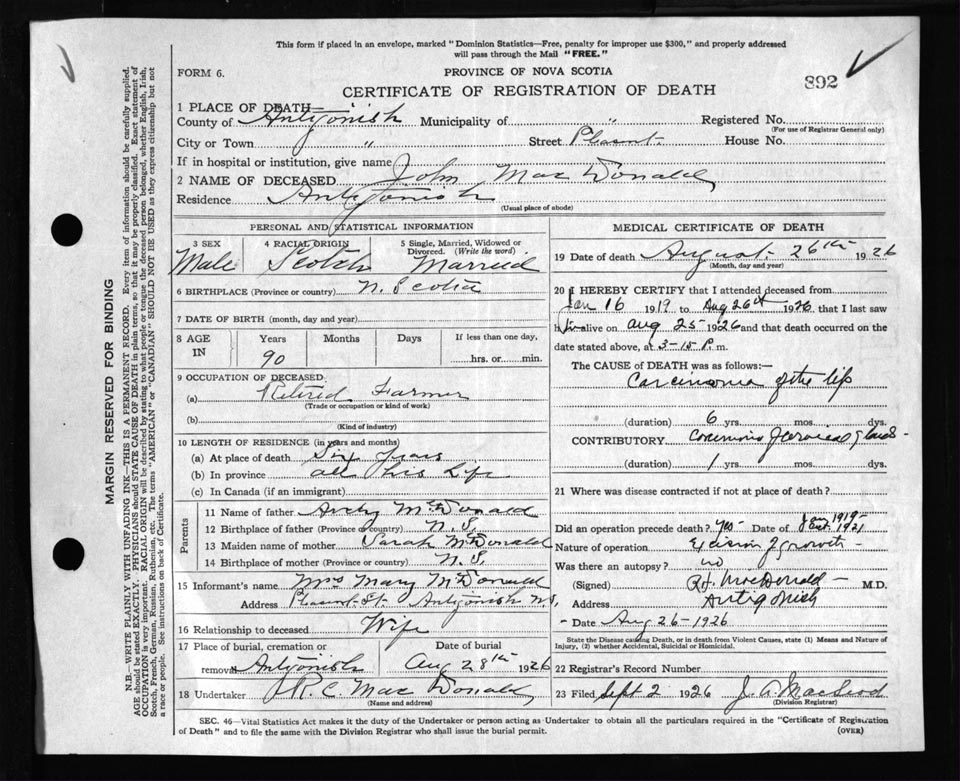 This form if placed in an envelope, marked "Dominion Statistics—Free, penalty for improper use $300," and properly addressed
will pass through the Mail "FREE."
FORM 6.
PROVINCE OF NOVA SCOTIA
892
CERTIFICATE OF REGISTRATION OF DEATH
1 PLACE OF DEATH
County of Antigonish Municipality of " Registered No.
(For use of Registrar General only)
City or Town " Street Pleasant House No.
If in hospital or institution, give name
2 NAME OF DECEASED John MacDonald
Residence Antigonish
(Usual place of abode)
PERSONAL AND STATISTICAL INFORMATION
3 SEX 4 RACIAL ORIGIN 5 Single, Married, Widowed or Divorced. (Write the word)
Male Scotch Married
6 BIRTHPLACE (Province or country) N. Scotia
7 DATE OF BIRTH (month, day and year)
8 AGE IN Years Months Days If less than one day,
90 hrs. or min.
9 OCCUPATION OF DECEASED
(a) Retired Farmer
(Trade or occupation or kind of work)
(b)
(Kind of industry)
10 LENGTH OF RESIDENCE (in years and months)
(a) At place of death Six years
(b) In province all his Life
(c) In Canada (if an immigrant)
Parents
11 Name of father Archy McDonald
12 Birthplace of father (Province or country) N. S.
13 Maiden name of mother Sarah McDonald
14 Birthplace of mother (Province or country) N. S.
15 Informant's name Mrs Mary McDonald
Address Pleasant St. Antigonish N.S.
16 Relationship to deceased Wife
17 Place of burial, cremation or Date of burial
removal Antigonish Aug 28th 1926
18 Undertaker R. C. MacDonald
(Name and address)
MEDICAL CERTIFICATE OF DEATH
19 Date of death August 26th 1926
(Month, day and year)
20 I HEREBY CERTIFY that I attended deceased from
Jan 16 1919 to Aug 26th 1926, that I last saw
him alive on Aug 25 1926 and that death occurred on
date stated above, at 3-15 P. m.
The CAUSE of DEATH was as follows:—
Carcinoma of the lip
(duration) 6 yrs. mos. dys.
CONTRIBUTORY of cervical glands
(duration) 1 yrs. mos. dys.
21 Where was disease contracted if not at place of death?
Did an operation precede death? Yes Date of 1919- 1921
Nature of operation Excision of growth
Was there an autopsy? no
(Signed) R.H. MacDonald M.D.
Address Antigonish
Date Aug 26-1926
State the Disease causing Death, or in death from Violent Causes, state (1) Means and Nature of
Injury, (2) whether Accidental, Suicidal or Homicidal.
22 Registrar's Record Number
23 Filed Sept 2 1926 J. A. MacLeod
(Division Registrar)
SEC. 46—Vital Statistics Act makes it the duty of the Undertaker or person acting as Undertaker to obtain all the particulars required in the "Certificate of Registration
of Death" and to file the same with the Division Registrar who shall issue the burial permit. (OVER)
MARGIN RESERVED FOR BINDING
N.B.—WRITE PLAINLY WITH UNFADING INK—THIS IS A PERMANENT RECORD. Every item of information should be carefully supplied.
AGE should be stated EXACTLY. PHYSICIANS should STATE CAUSE OF DEATH in plain terms, so that it may be properly classified. Exact statement of
OCCUPATION is very important. RACIAL ORIGIN will be described by stating to what people or tongue the deceased person belonged, whether English, Irish,
Scotch, French, German, Russian, Ruthenian, etc. The terms "AMERICAN" or "CANADIAN" SHOULD NOT BE USED as they express citizenship but not
a race or people. See instructions on back of Certificate.